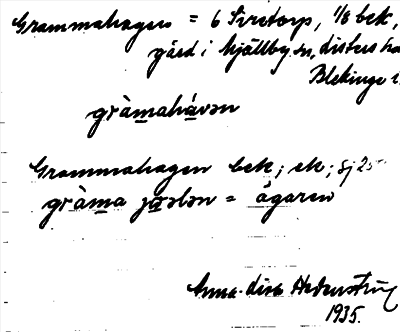 Grammahagen = 6 Siretorp, 1/8 bek,
gård i Mjällby sn, Listers hd
Blekinge l.
gràmahávən
Grammahagen bek; ek; sj 25
gràma = ágaren
Anna-Lisa Hedenström
1935.